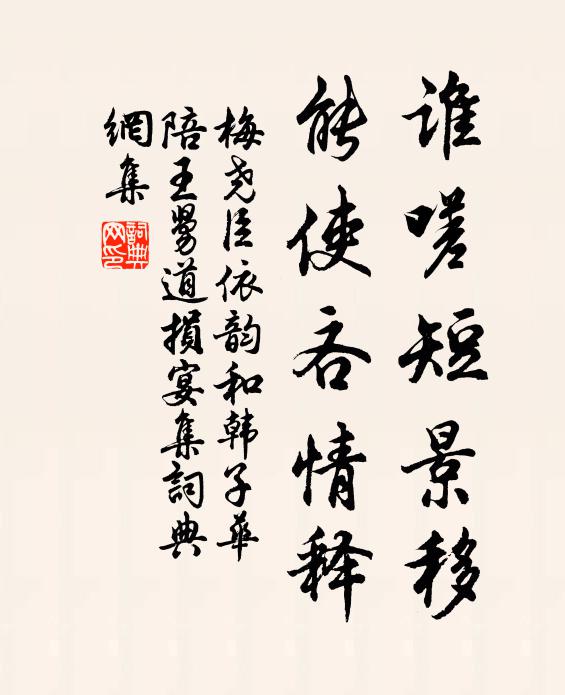 谁嗟短景移
能使吝情释
梅尧臣依韵和韩子华
陪王舅道损宴集詞典
網集
詞典
网印